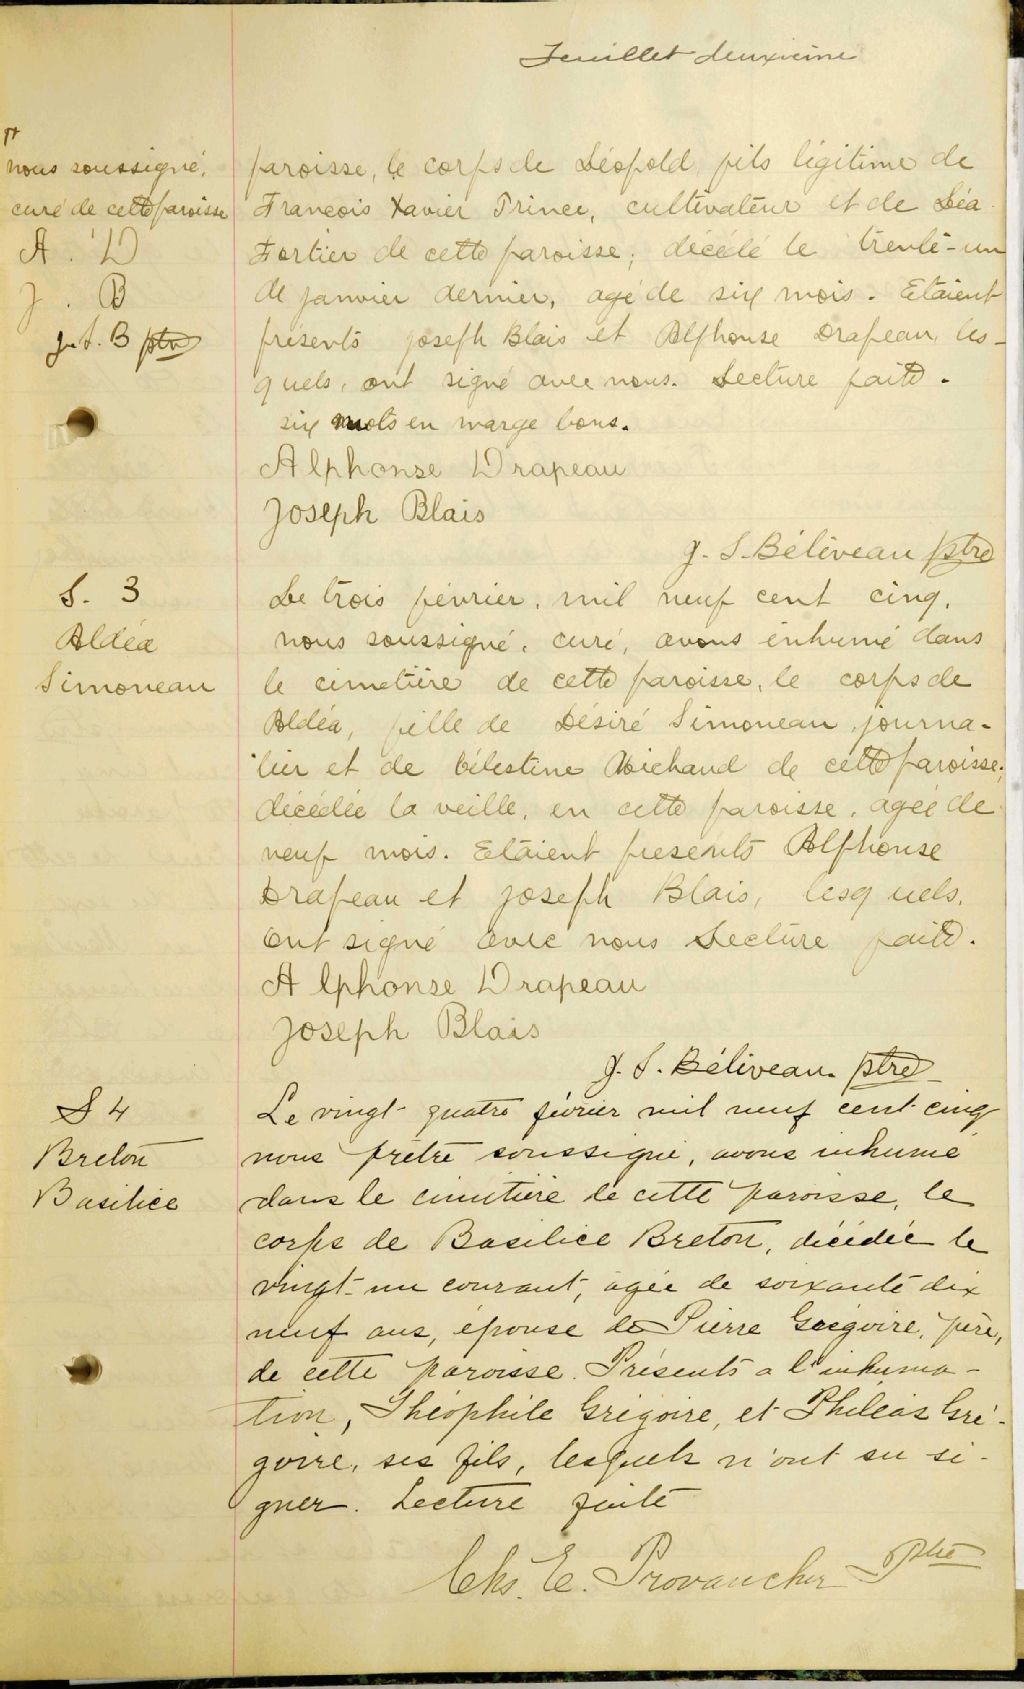 Feuillet deuxième
nous soussigné,
curé de cette paroisse
A. D
J. B
J. S. B ptre
paroisse, le corps de Léopold fils légitime de
Francois Xavier Prince, cultivateur et de Léa
Fortier de cette paroisse; décédé le trente-un
de janvier dernier, agé de six mois. Etaient
présents Joseph Blais et Alphonse Drapeau, les-
quels, ont signé avec nous. Lecture faite.
six mots en marge bons.
Alphonse Drapeau
Joseph Blais
J. S. Béliveau ptre
S. 3
Aldéa
Simoneau
Le trois février, mil neuf cent cinq,
nous soussigné, curé, avons inhumé dans
le cimetière de cette paroisse, le corps de
Aldéa, fille de Désiré Simoneau, journa-
lier et de Célestine Michaud de cette paroisse;
décédée la veille, en cette paroisse, agée de
neuf mois. Etaient presents Alphonse
Drapeau et Joseph Blais, lesquels,
ont signé avec nous Lecture faite.
Alphonse Drapeau
Joseph Blais
J. S. Béliveau ptre
S 4
Breton
Basilice
Le vingt-quatre février mil neuf cent cinq
nous prêtre soussigné, avons inhumé
dans le cimetière de cette paroisse, le
corps de Basilice Breton, décédée le
vingt-un courant, agée de soixante dix
neuf ans, épouse de Pierre Grégoire, père,
de cette paroisse. Présents a l'inhuma-
tion, Théophile Grégoire, et Philéas Gré-
goire, ses fils, lesquels n'ont su si-
gner. Lecture faite
Chs. E. Provancher Ptre